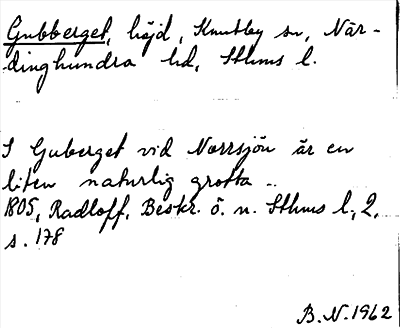 Gubberget, höjd, Knutby sn, När-
dinghundra hd, Sthms l.
I Guberget vid Norrsjön är en
liten naturlig grotta ..
1805, Radloff, Beskr. ö. n. Sthms l., 2,
s. 178
B.N. 1962